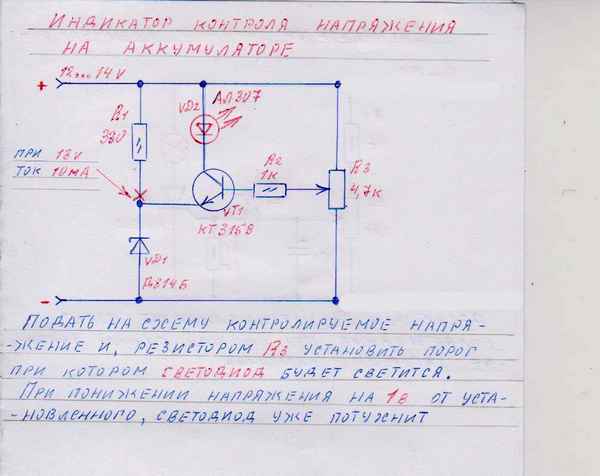 ИНДИКАТОР КОНТРОЛЯ НАПРЯЖЕНИЯ
НА АККУМУЛЯТОРЕ
+ 12...14V
R1
390
VD2
АЛ307
ПРИ 13V
ТОК 10мА
R2
1К
R3
4,7К
VT1
КТ315В
VD1
Д814Б
-
ПОДАТЬ НА СХЕМУ КОНТРОЛИРУЕМОЕ НАПРЯ-
-ЖЕНИЕ И, РЕЗИСТОРОМ R3 УСТАНОВИТЬ ПОРОГ
ПРИ КОТОРОМ СВЕТОДИОД БУДЕТ СВЕТИТСЯ.
ПРИ ПОНИЖЕНИИ НАПРЯЖЕНИЯ НА 1в ОТ УСТА-
-НОВЛЕННОГО, СВЕТОДИОД УЖЕ ПОТУХНИТ